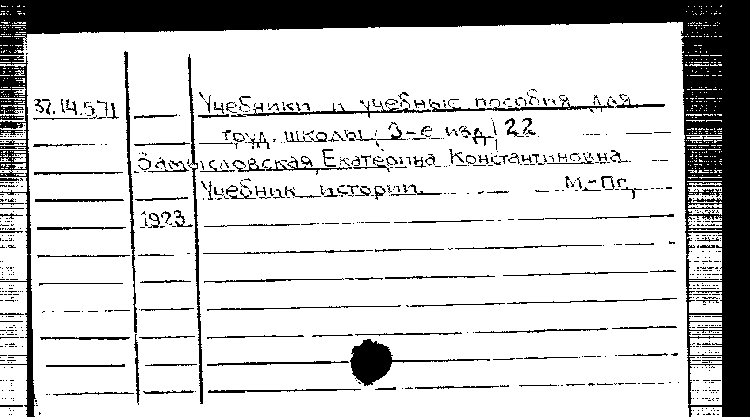 37.14.571 Учебники и учебные пособия для
труд. школы, 3-е изд. 22
Замысловская, Екатерина Константиновна
Учебник истории. М.-Пг,
1923